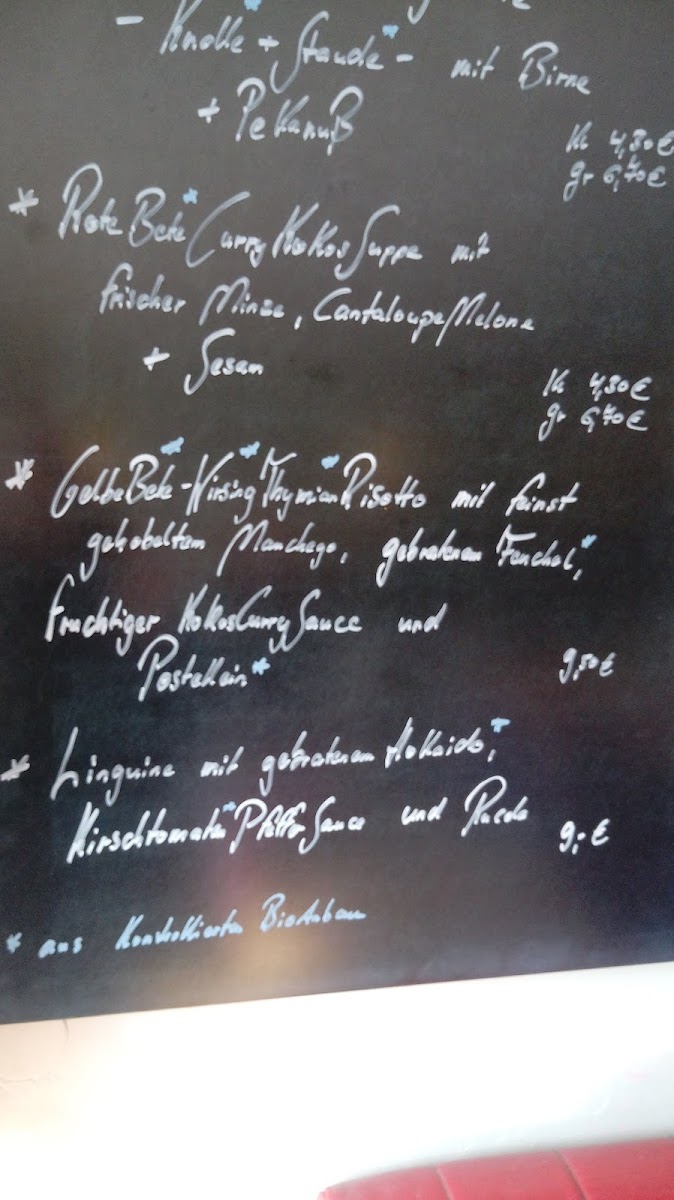 - Knolle* + Staude* - mit Birne
+ PekanuB
kl 4,30€
gr 6,70€
* Rote Bete* Curry KokosSuppe mit
frischer Minze, CantaloupeMelone
+ Sesam
kl 4,30€
gr 6,70€
* GelbeBete*-Wirsing*Thymian*Risotto mit feinst
gehobeltem Manchego, gebratenem Fenchel,*
fruchtiger KokosCurrySauce und
Postelein*
9,50€
* Linguine mit gebratenem Hokkaido,*
Kirschtomaten*PfefferSauce und Rucola
9,-€
* aus Kontrollierten BioAnbau